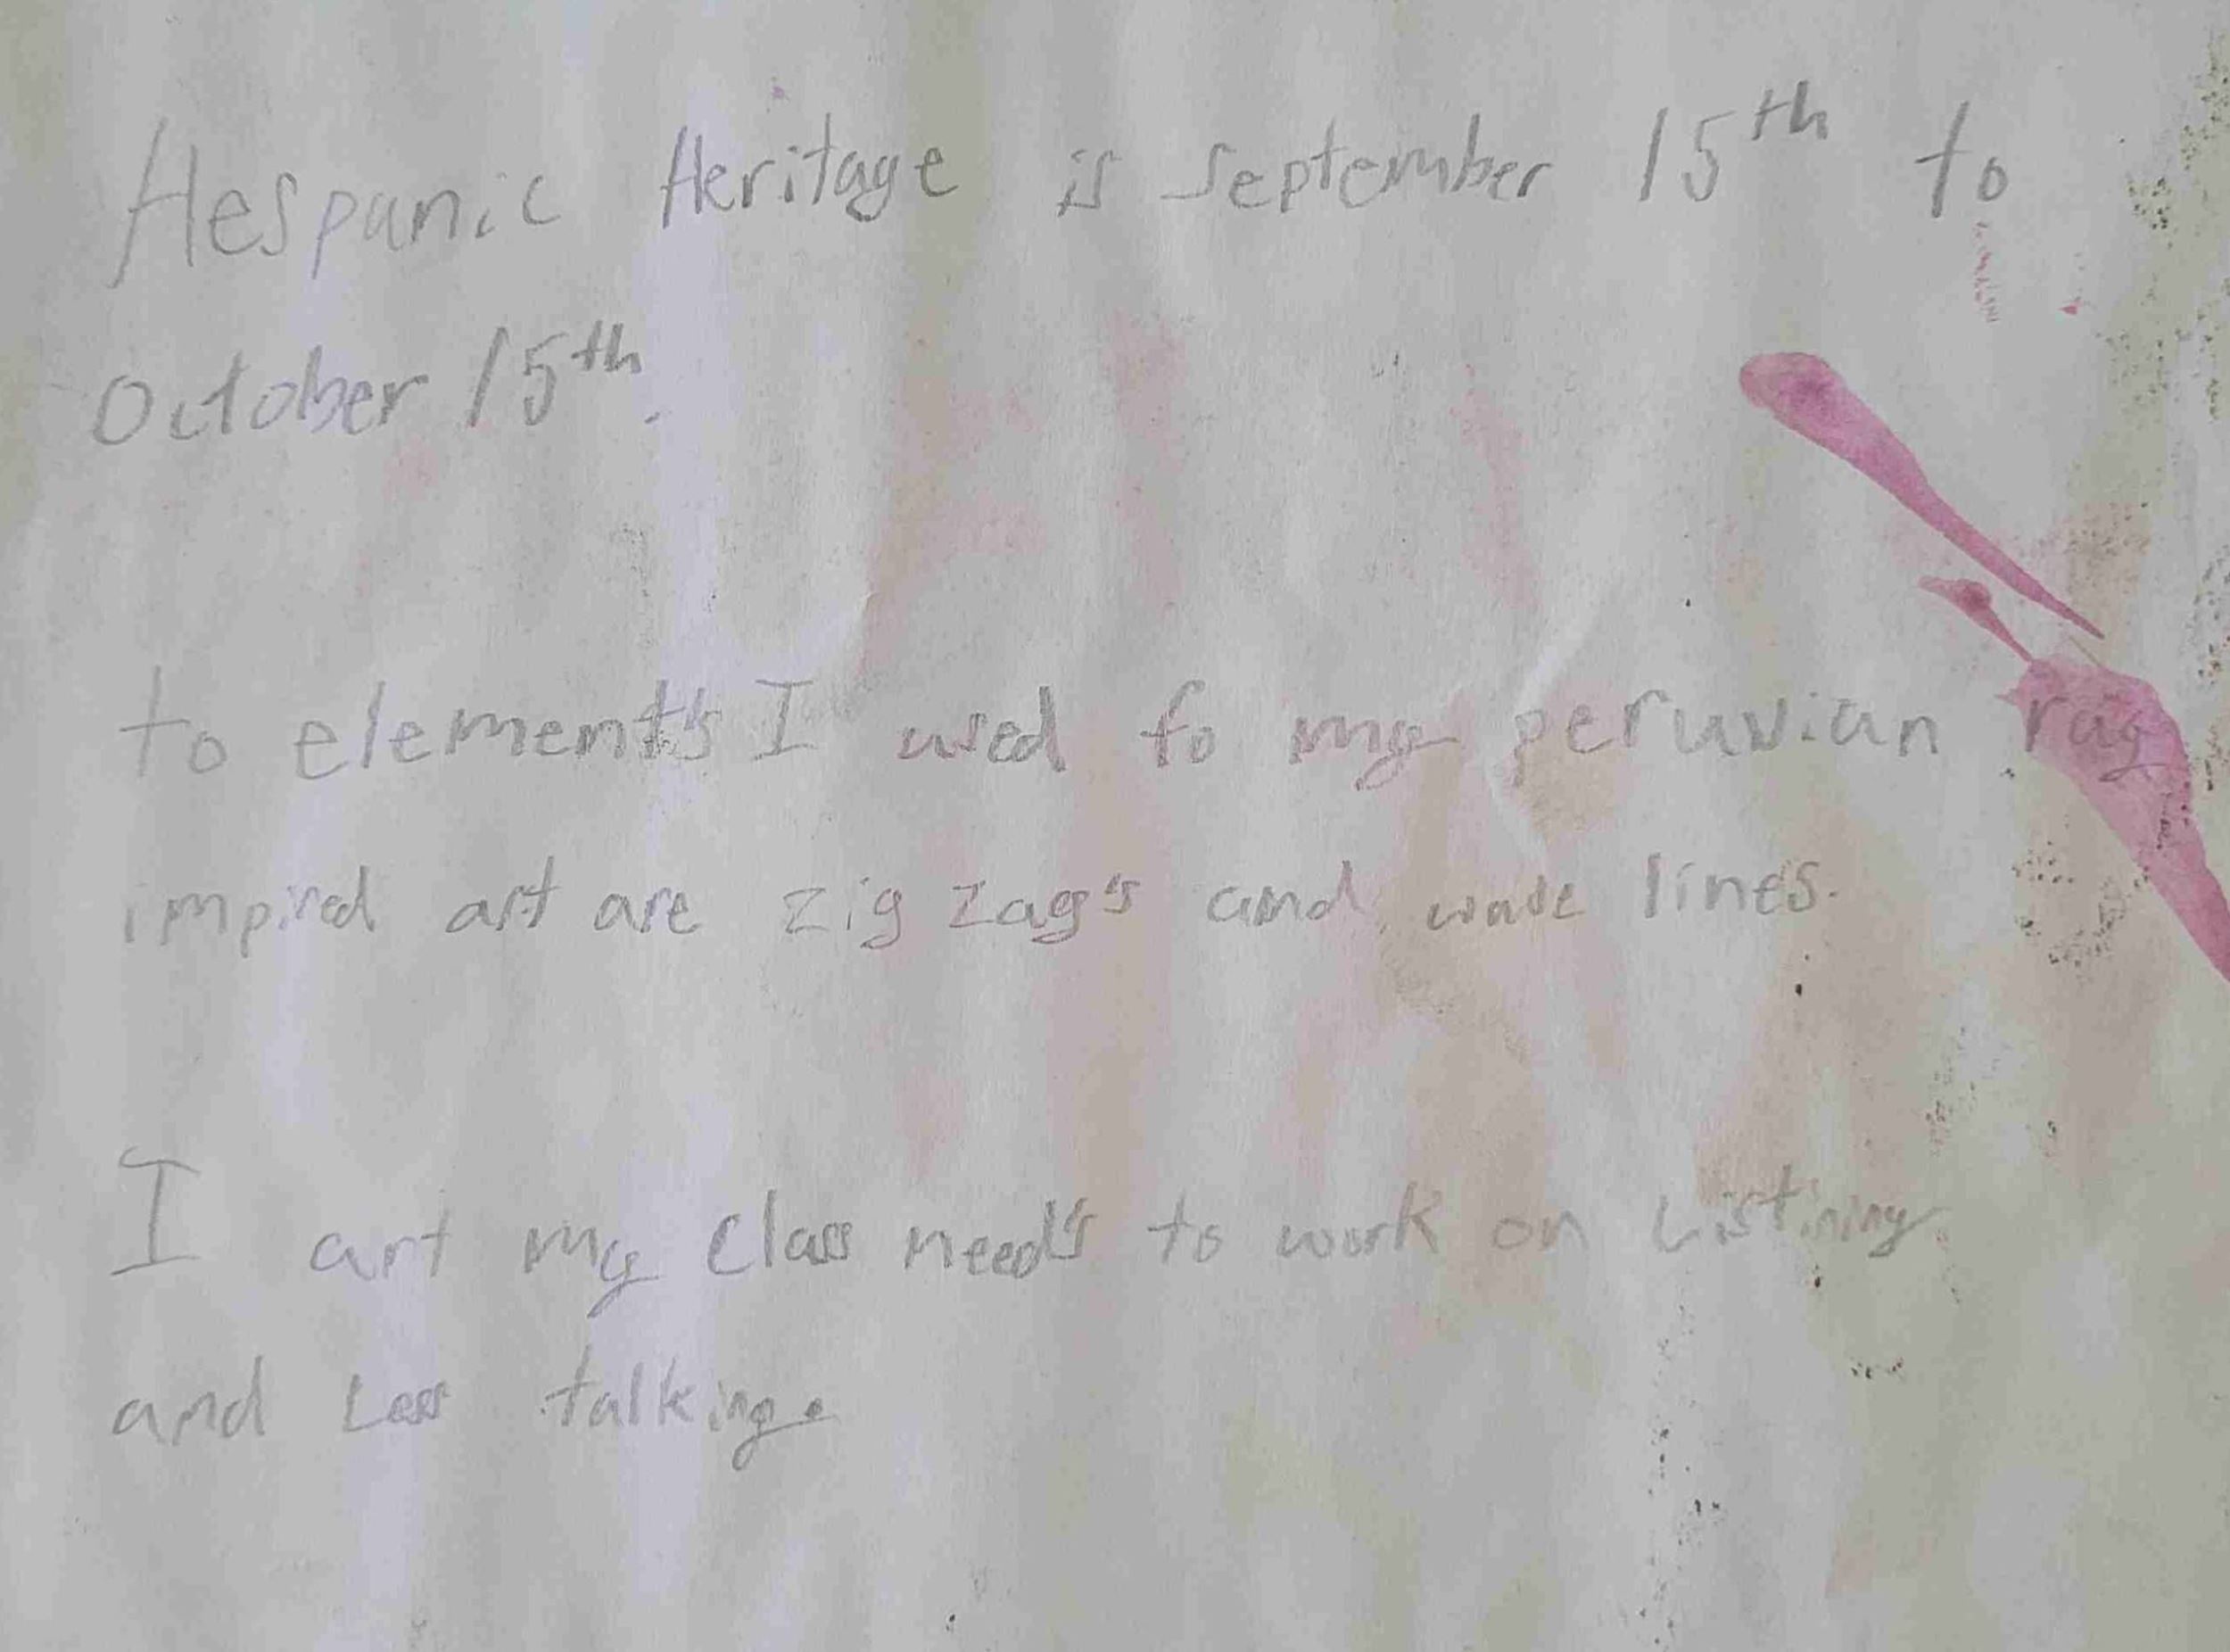 Hespanic Heritage is September 15th to
October 15th.
to element's I used fo my peruvian rug
impired art are zig zag's and wave lines.
I art my class need's to work on Listining
and Less talking.